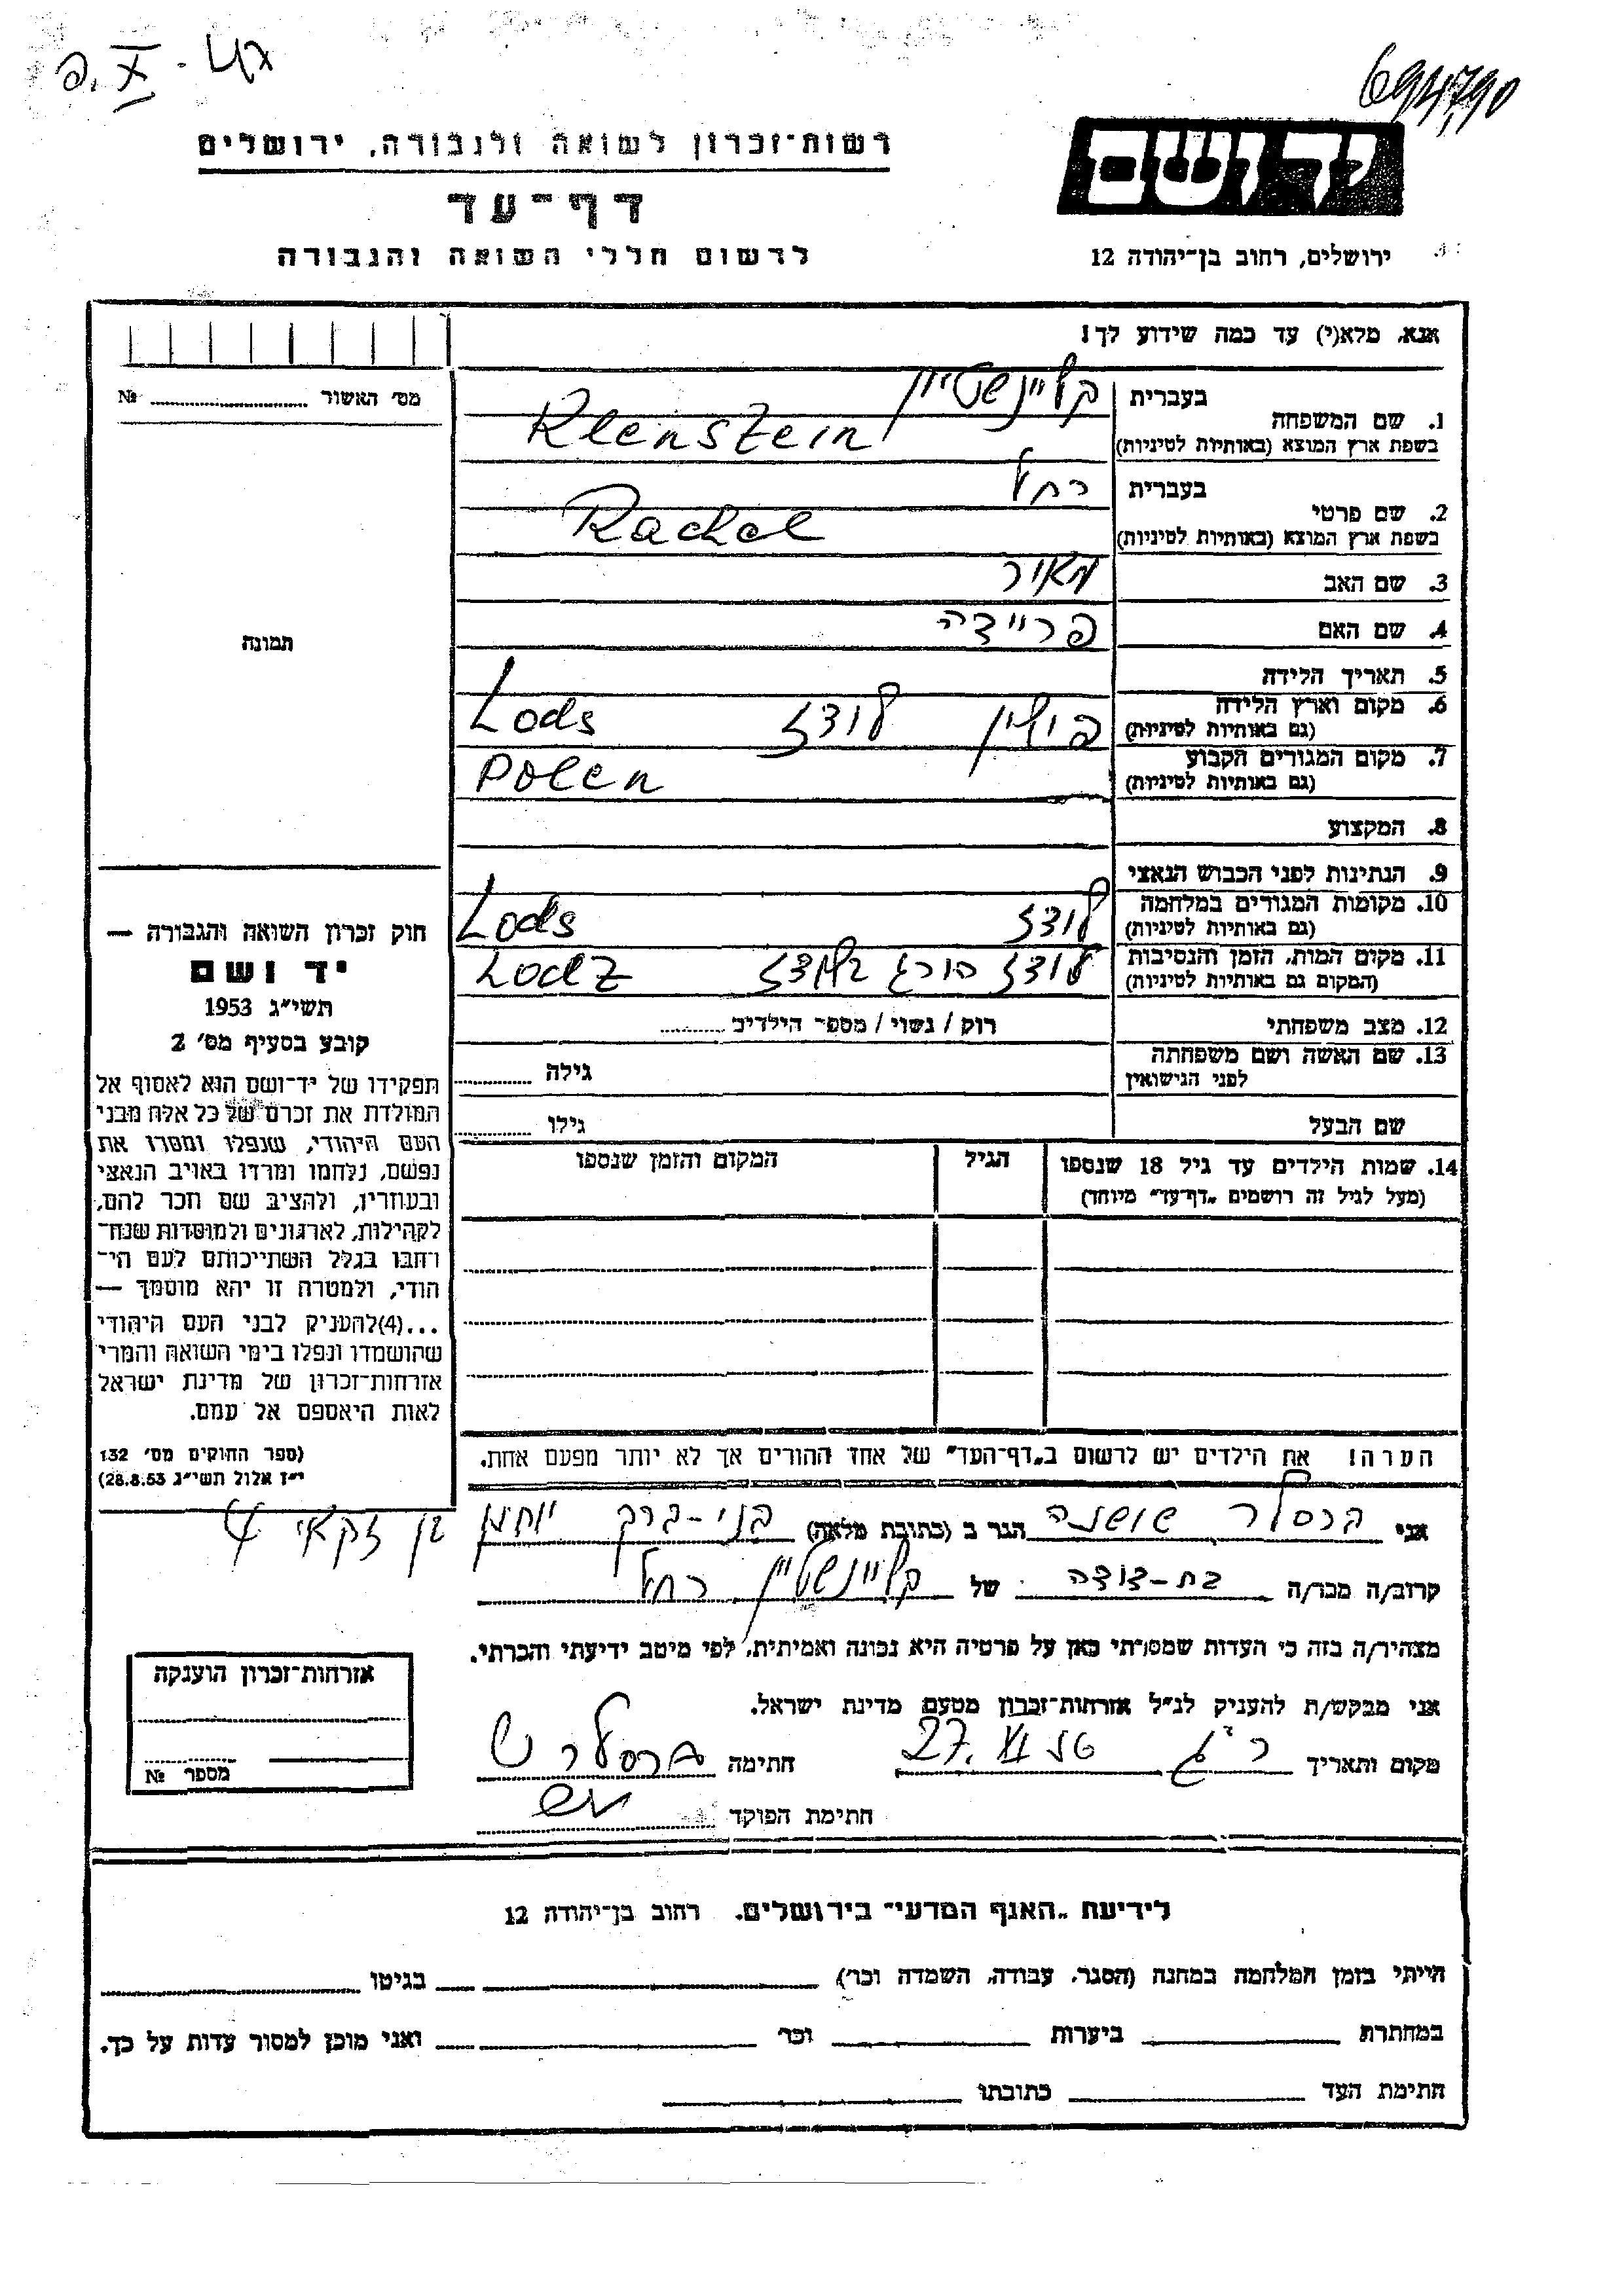 694,790
יד ושם
רשות-זכרון לשואה ולגבורה, ירושלים
דף-עד
לרשום חללי השואה והגבורה
ירושלים, רחוב בן-יהודה 12
אנא, מלא(י) עד כמה שידוע לך!
מס' האשור №
1. שם המשפחה
בעברית קליינשטיין
בשפת ארץ המוצא (באותיות לטיניות) Klenstein
2. שם פרטי
בעברית רחל
בשפת ארץ המוצא (באותיות לטיניות) Rachel
3. שם האב
4. שם האם פריידה
תמונה
5. תאריך הלידה
6. מקום וארץ הלידה (גם באותיות לטיניות) פולין לודז Lods
7. מקום המגורים הקבוע (גם באותיות לטיניות) Polen
8. המקצוע
9. הנתינות לפני הכבוש הנאצי
10. מקומות המגורים במלחמה (גם באותיות לטיניות) לודז Lods
11. מקום המות, הזמן והנסיבות (המקום גם באותיות לטיניות) לודז בלודז Lodz
12. מצב משפחתי רוק / נשוי / מספר הילדים
13. שם האשה ושם משפחתה לפני הנישואין גילה
שם הבעל גילו
14. שמות הילדים עד גיל 18 שנספו הגיל המקום והזמן שנספו
(מעל לגיל זה רושמים „דף-עד" מיוחד)
חוק זכרון השואה והגבורה —
יד ושם
תשי"ג 1953
קובע בסעיף מס' 2
תפקידו של יד-ושם הוא לאסוף אל
המולדת את זכרם של כל אלה מבני
העם היהודי, שנפלו ומסרו את
נפשם, נלחמו ומרדו באויב הנאצי
ובעוזריו, ולהציב שם וזכר להם,
לקהילות, לארגונים ולמוסדות שנח-
רבו בגלל השתייכותם לעם הי-
הודי, ולמטרה זו יהא מוסמך —
...(4)להעניק לבני העם היהודי
שהושמדו ונפלו בימי השואה והמרי
אזרחות-זכרון של מדינת ישראל
לאות היאספם אל עמם.
(ספר החוקים מס' 132
י"ז אלול תשי"ג 28.8.53)
הערה! את הילדים יש לרשום ב„דף-העד" של אחד ההורים אך לא יותר מפעם אחת.
אני ברסלר שושנה הגר ב (כתובת מלאה) בני-ברק יוחנן בן זכאי 4
קרוב/ה מכר/ה בת-דודה של קליינשטיין רחל
מצהיר/ה בזה כי העדות שמסרתי כאן על פרטיה היא נכונה ואמיתית, לפי מיטב ידיעתי והכרתי.
אני מבקש/ת להעניק לנ"ל אזרחות-זכרון מטעם מדינת ישראל.
מקום ותאריך ר"ג 27. VI חתימה ברסלר ש
חתימת הפוקד
אזרחות-זכרון הוענקה
מספר №
לידיעת „האגף המדעי" בירושלים. רחוב בן-יהודה 12
הייתי בזמן המלחמה במחנה (הסגר, עבודה, השמדה וכו') בגיטו
במחתרת ביערות וכו' ואני מוכן למסור עדות על כך.
חתימת העד כתובתו